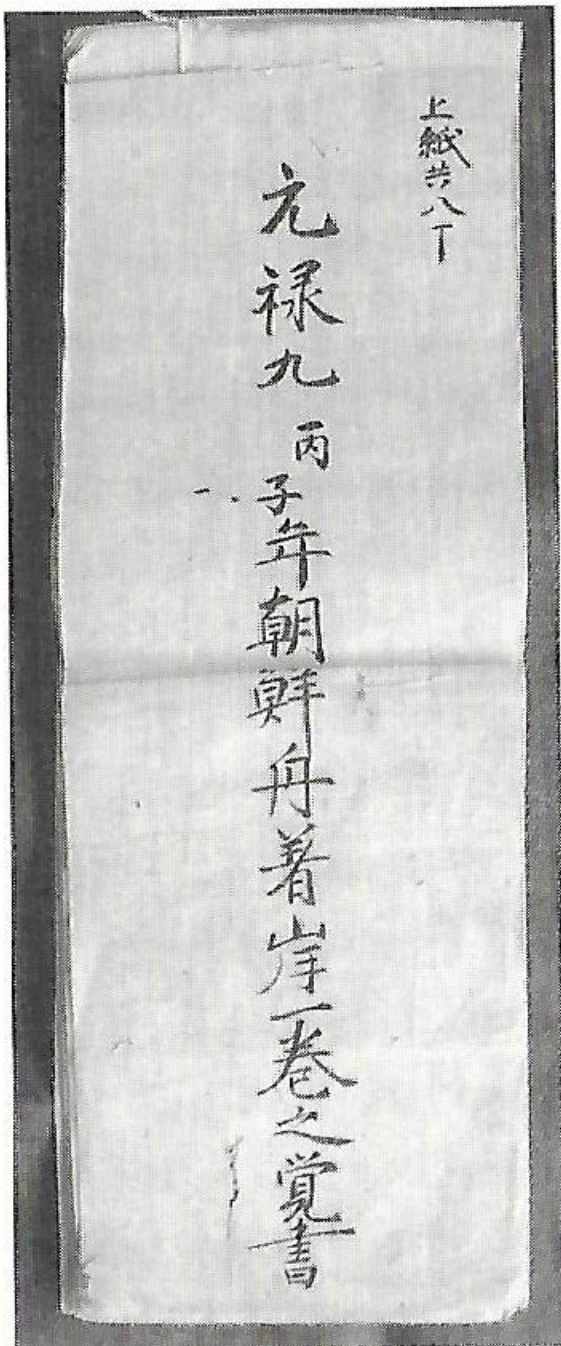 上紙共八丁
元禄九丙子年朝鮮舟着岸一巻之覚書